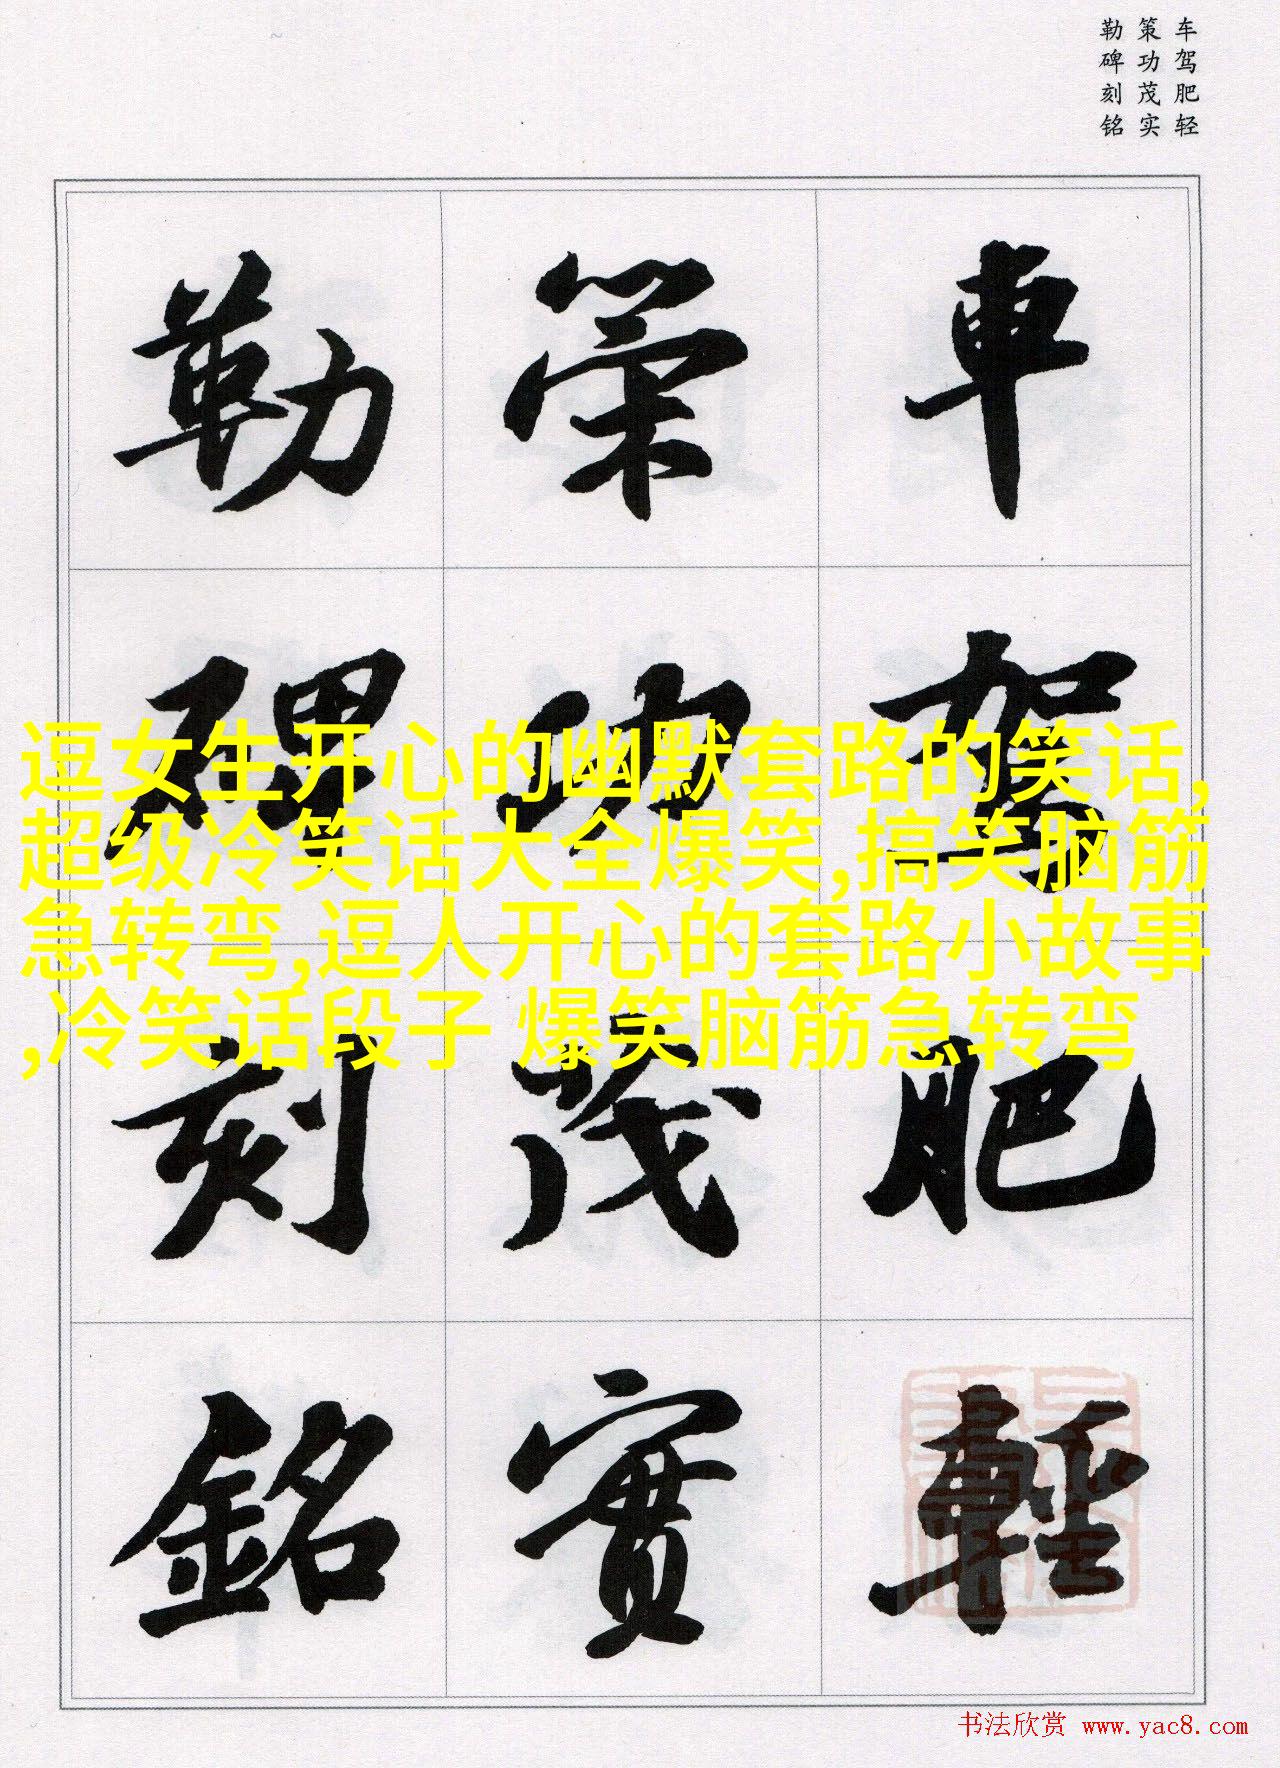 车驾肥轻
策功茂实
勒碑刻铭
車駕肥輕
策功茂實
勒碑刻銘
逗女生开心的幽默套路的笑话,
超级冷笑话大全爆笑,搞笑脑筋
急转弯,逗人开心的套路小故事
,冷笑话段子 爆笑脑筋急转弯
书法欣赏 www.yac8.com